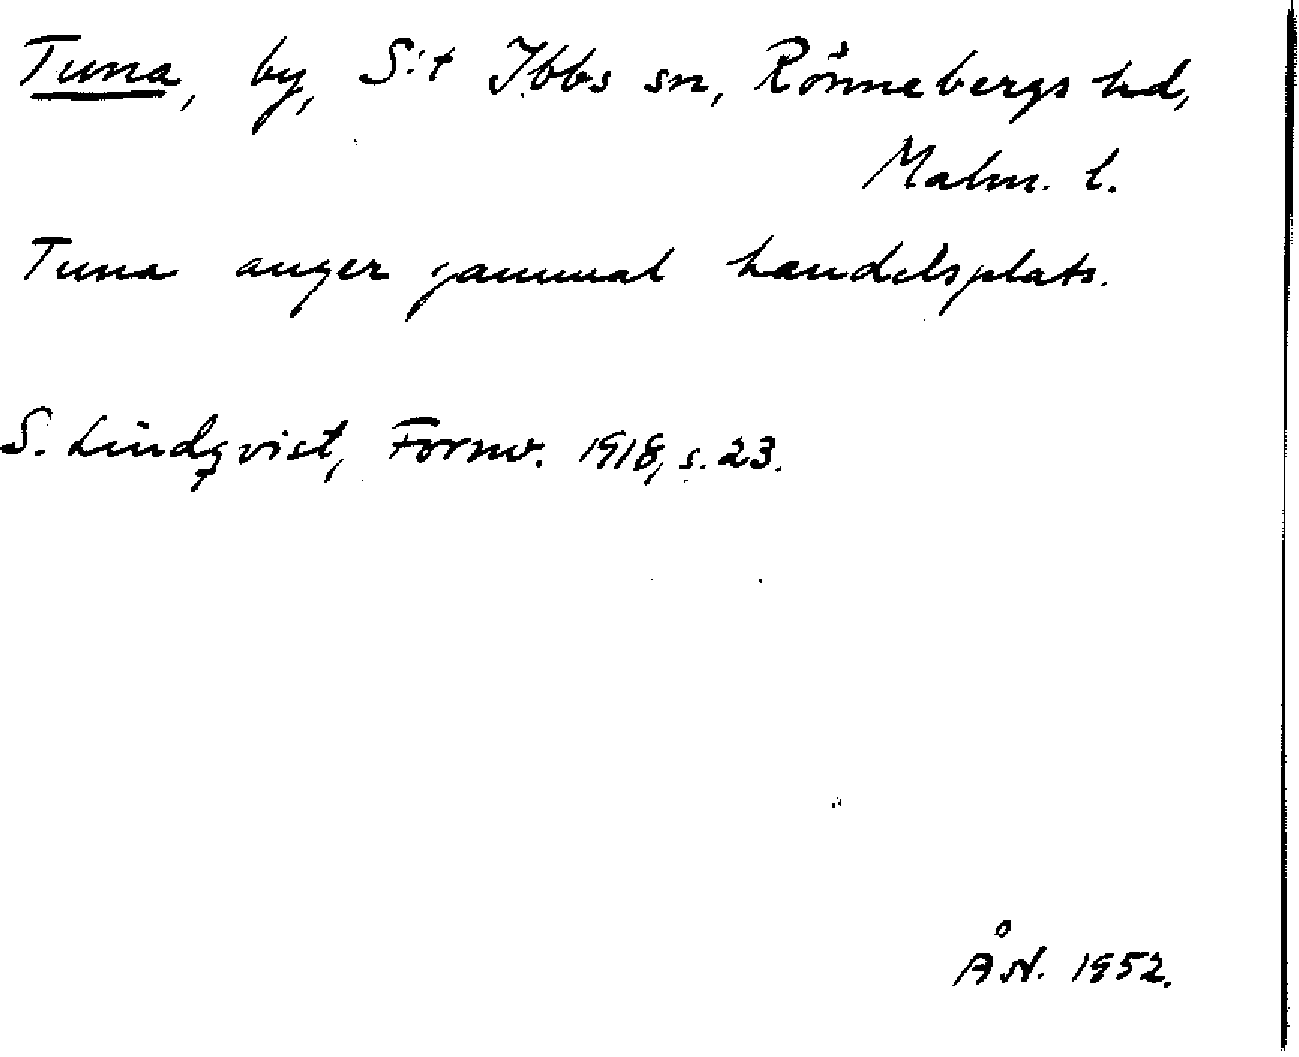 Tuna, by, S:t Ibbs sn, Rönnebergs hd,
Malm. l.
Tuna anger gammal handelsplats.
S. Lindqvist, Fornv. 1918, s. 23.
ÅN. 1952.